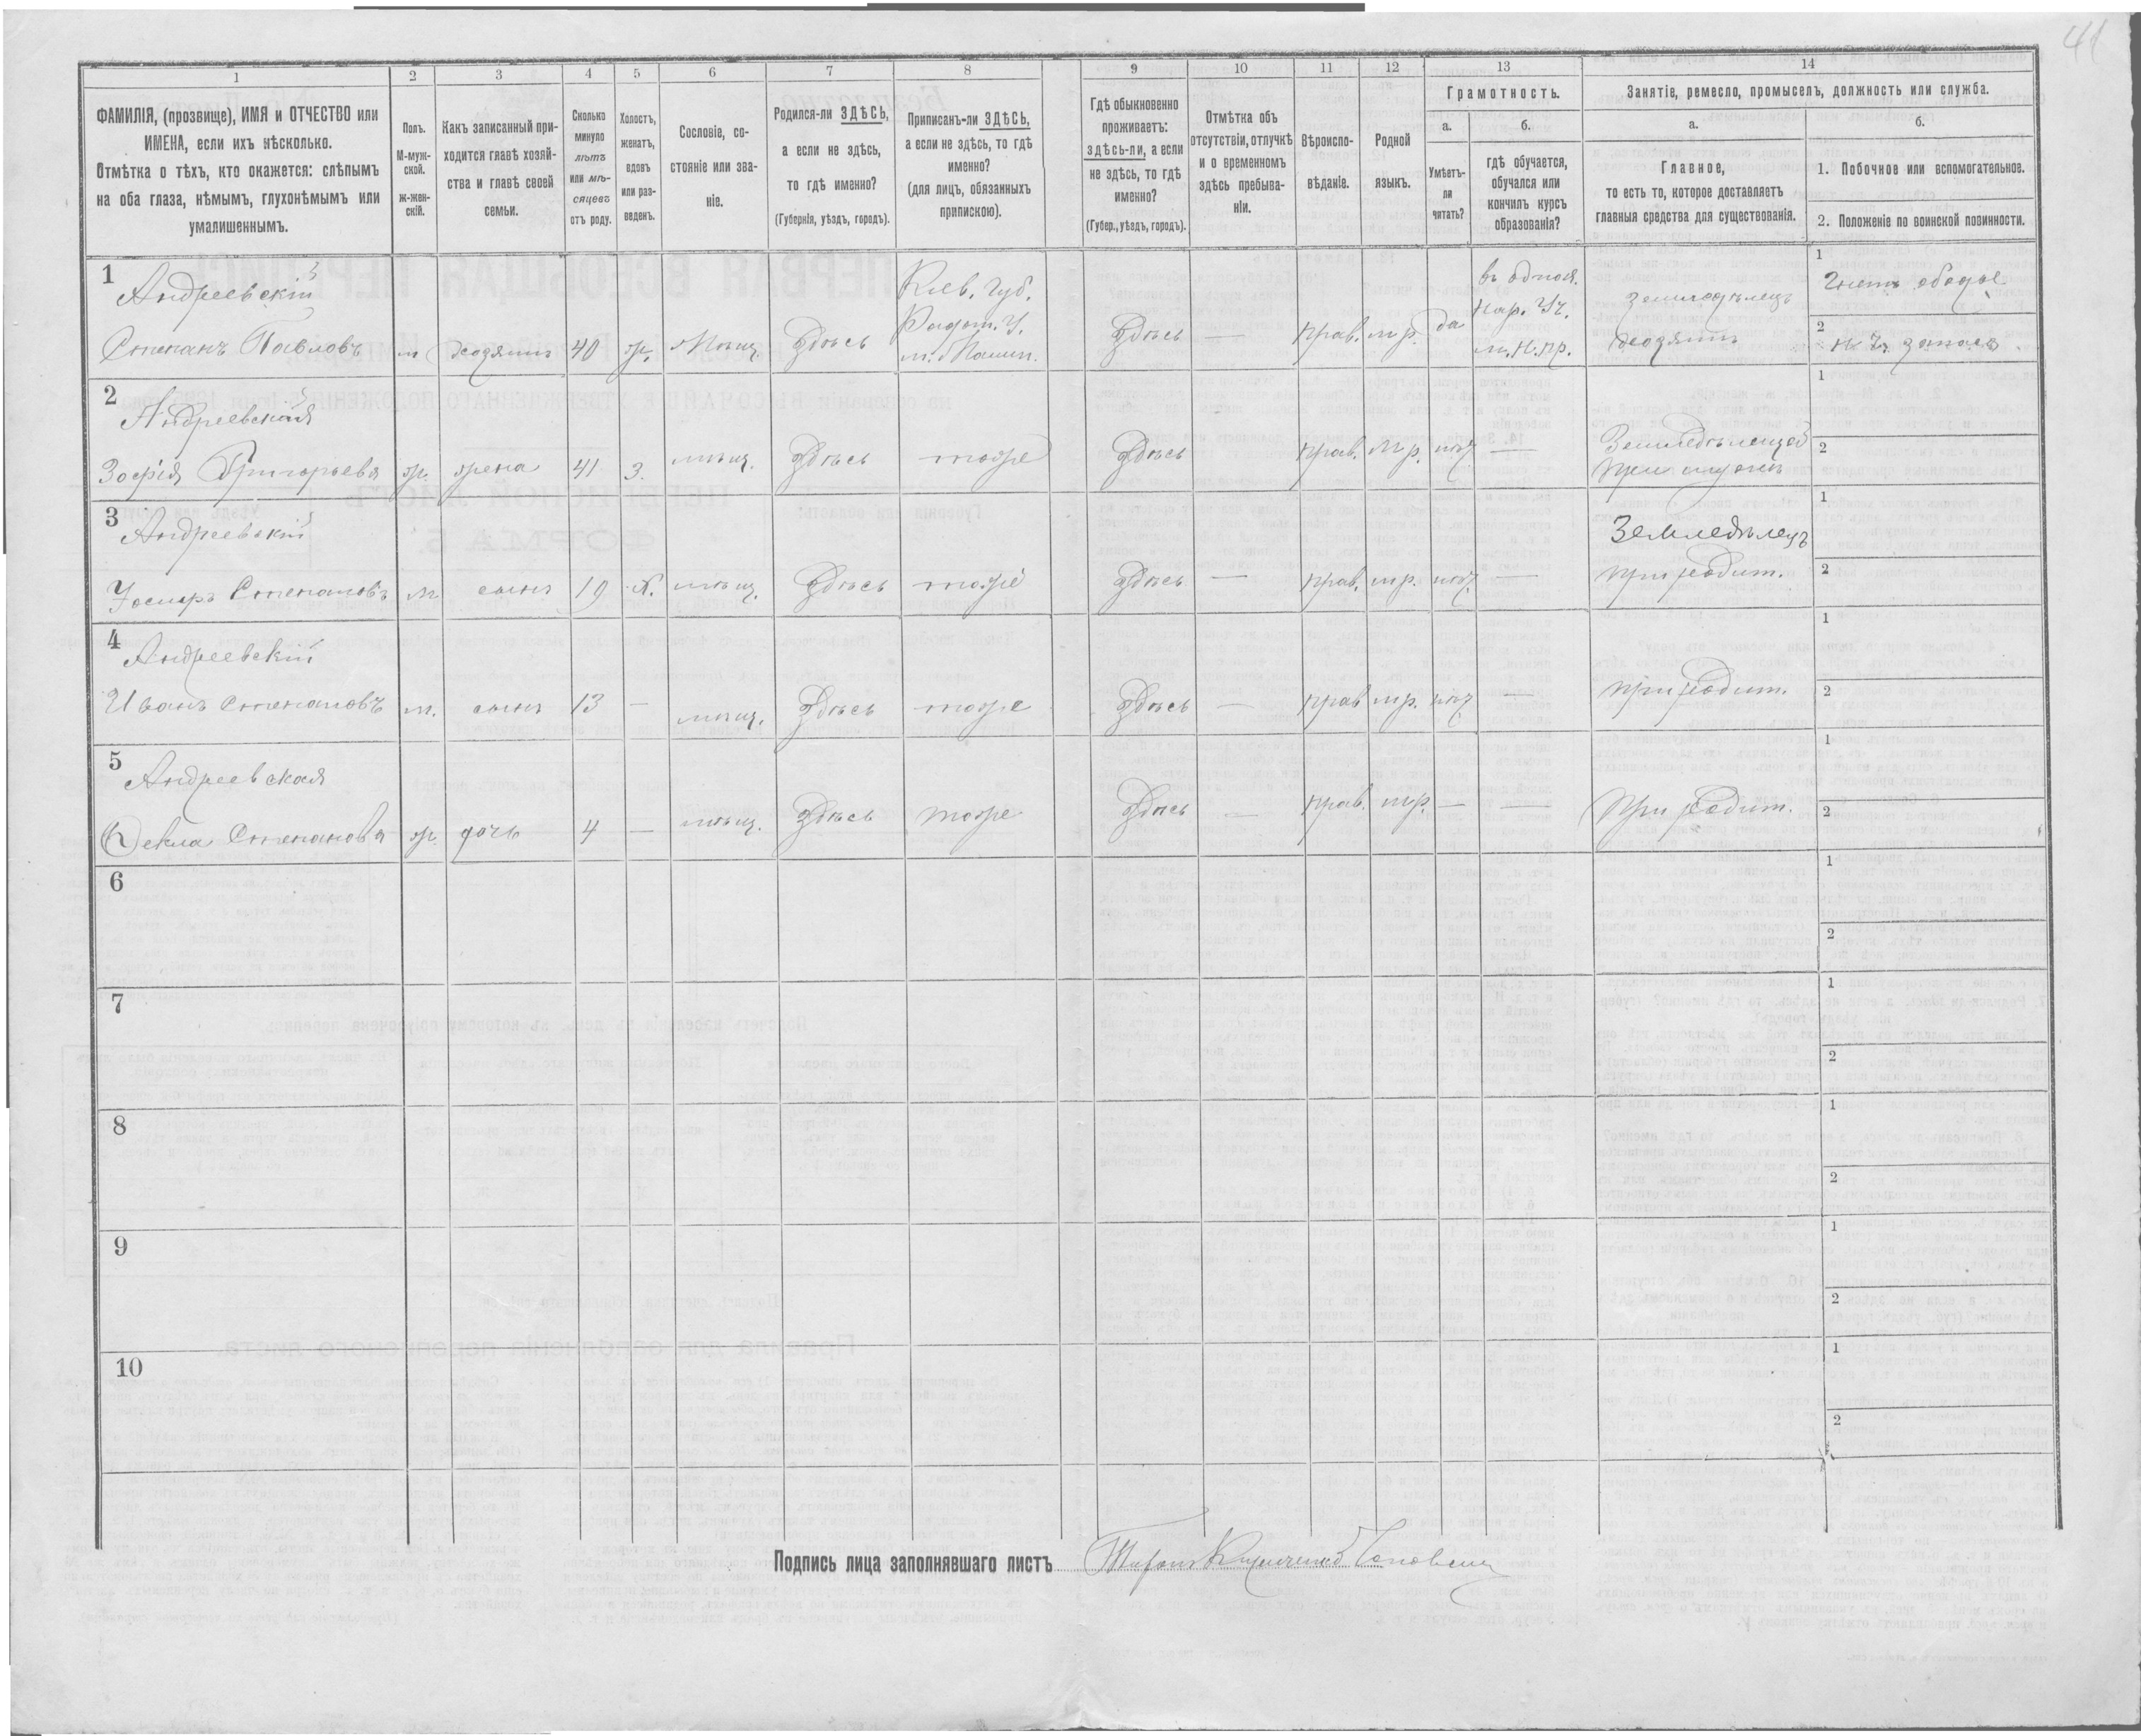 41
1 2 3 4 5 6 7 8 9 10 11 12 13 14
ФАМИЛІЯ, (прозвище), ИМЯ и ОТЧЕСТВО или
ИМЕНА, если ихъ нѣсколько.
Отмѣтка о тѣхъ, кто окажется: слѣпымъ
на оба глаза, нѣмымъ, глухонѣмымъ или
умалишеннымъ.
Полъ.
М-муж-
ской.
ж-жен-
скій.
Какъ записанный при-
ходится главѣ хозяй-
ства и главѣ своей
семьи.
Сколько
минуло
лѣтъ
или мѣ-
сяцевъ
отъ роду.
Холостъ,
женатъ,
вдовъ
или раз-
веденъ.
Сословіе, со-
стояніе или зва-
ніе.
Родился-ли ЗДѢСЬ,
а если не здѣсь,
то гдѣ именно?
(Губернія, уѣздъ, городъ).
Приписанъ-ли ЗДѢСЬ,
а если не здѣсь, то гдѣ
именно?
(для лицъ, обязанныхъ
припискою).
Гдѣ обыкновенно
проживаетъ:
здѣсь-ли, а если
не здѣсь, то гдѣ
именно?
(Губер., уѣздъ, городъ).
Отмѣтка объ
отсутствіи, отлучкѣ
и о временномъ
здѣсь пребыва-
ніи.
Вѣроиспо-
вѣданіе.
Родной
языкъ.
Грамотность.
а.
Умѣетъ-
ли
читать?
б.
гдѣ обучается,
обучался или
кончилъ курсъ
образованія?
Занятіе, ремесло, промыселъ, должность или служба.
а.
Главное,
то есть то, которое доставляетъ
главныя средства для существованія.
б.
1. Побочное или вспомогательное.
2. Положеніе по воинской повинности.
1
Андреевскій
Степанъ Павловъ м Хозяинъ 40 ж. Мѣщ. Здѣсь
Кіев. Губ.
Радом. У.
Здѣсь — прав. м р. да
въ однокл.
Нар. Уч.
земледѣлецъ
хозяинъ
1
2
2
Андреевская
Зофія Григорьева ж. жена 41 з. мѣщ. Здѣсь тоже Здѣсь прав. м р. нѣт —
при мужѣ
1
2
3
Андреевскій
Степановъ м сынъ 19 х. мѣщ. Здѣсь тоже Здѣсь — прав. м р. нѣт —
Земледѣлецъ
при родит.
1
2
4
Андреевскій
Иванъ Степановъ м. сынъ 13 — мѣщ. Здѣсь тоже Здѣсь — прав м р. нѣт —
при родит.
1
2
5
Андреевская
Фекла Степанова ж. дочь 4 — мѣщ. Здѣсь тоже Здѣсь — прав. м р. — —
при родит.
1
2
6
1
2
7
1
2
8
1
2
9
1
2
10
1
2
Подпись лица заполнявшаго листъ